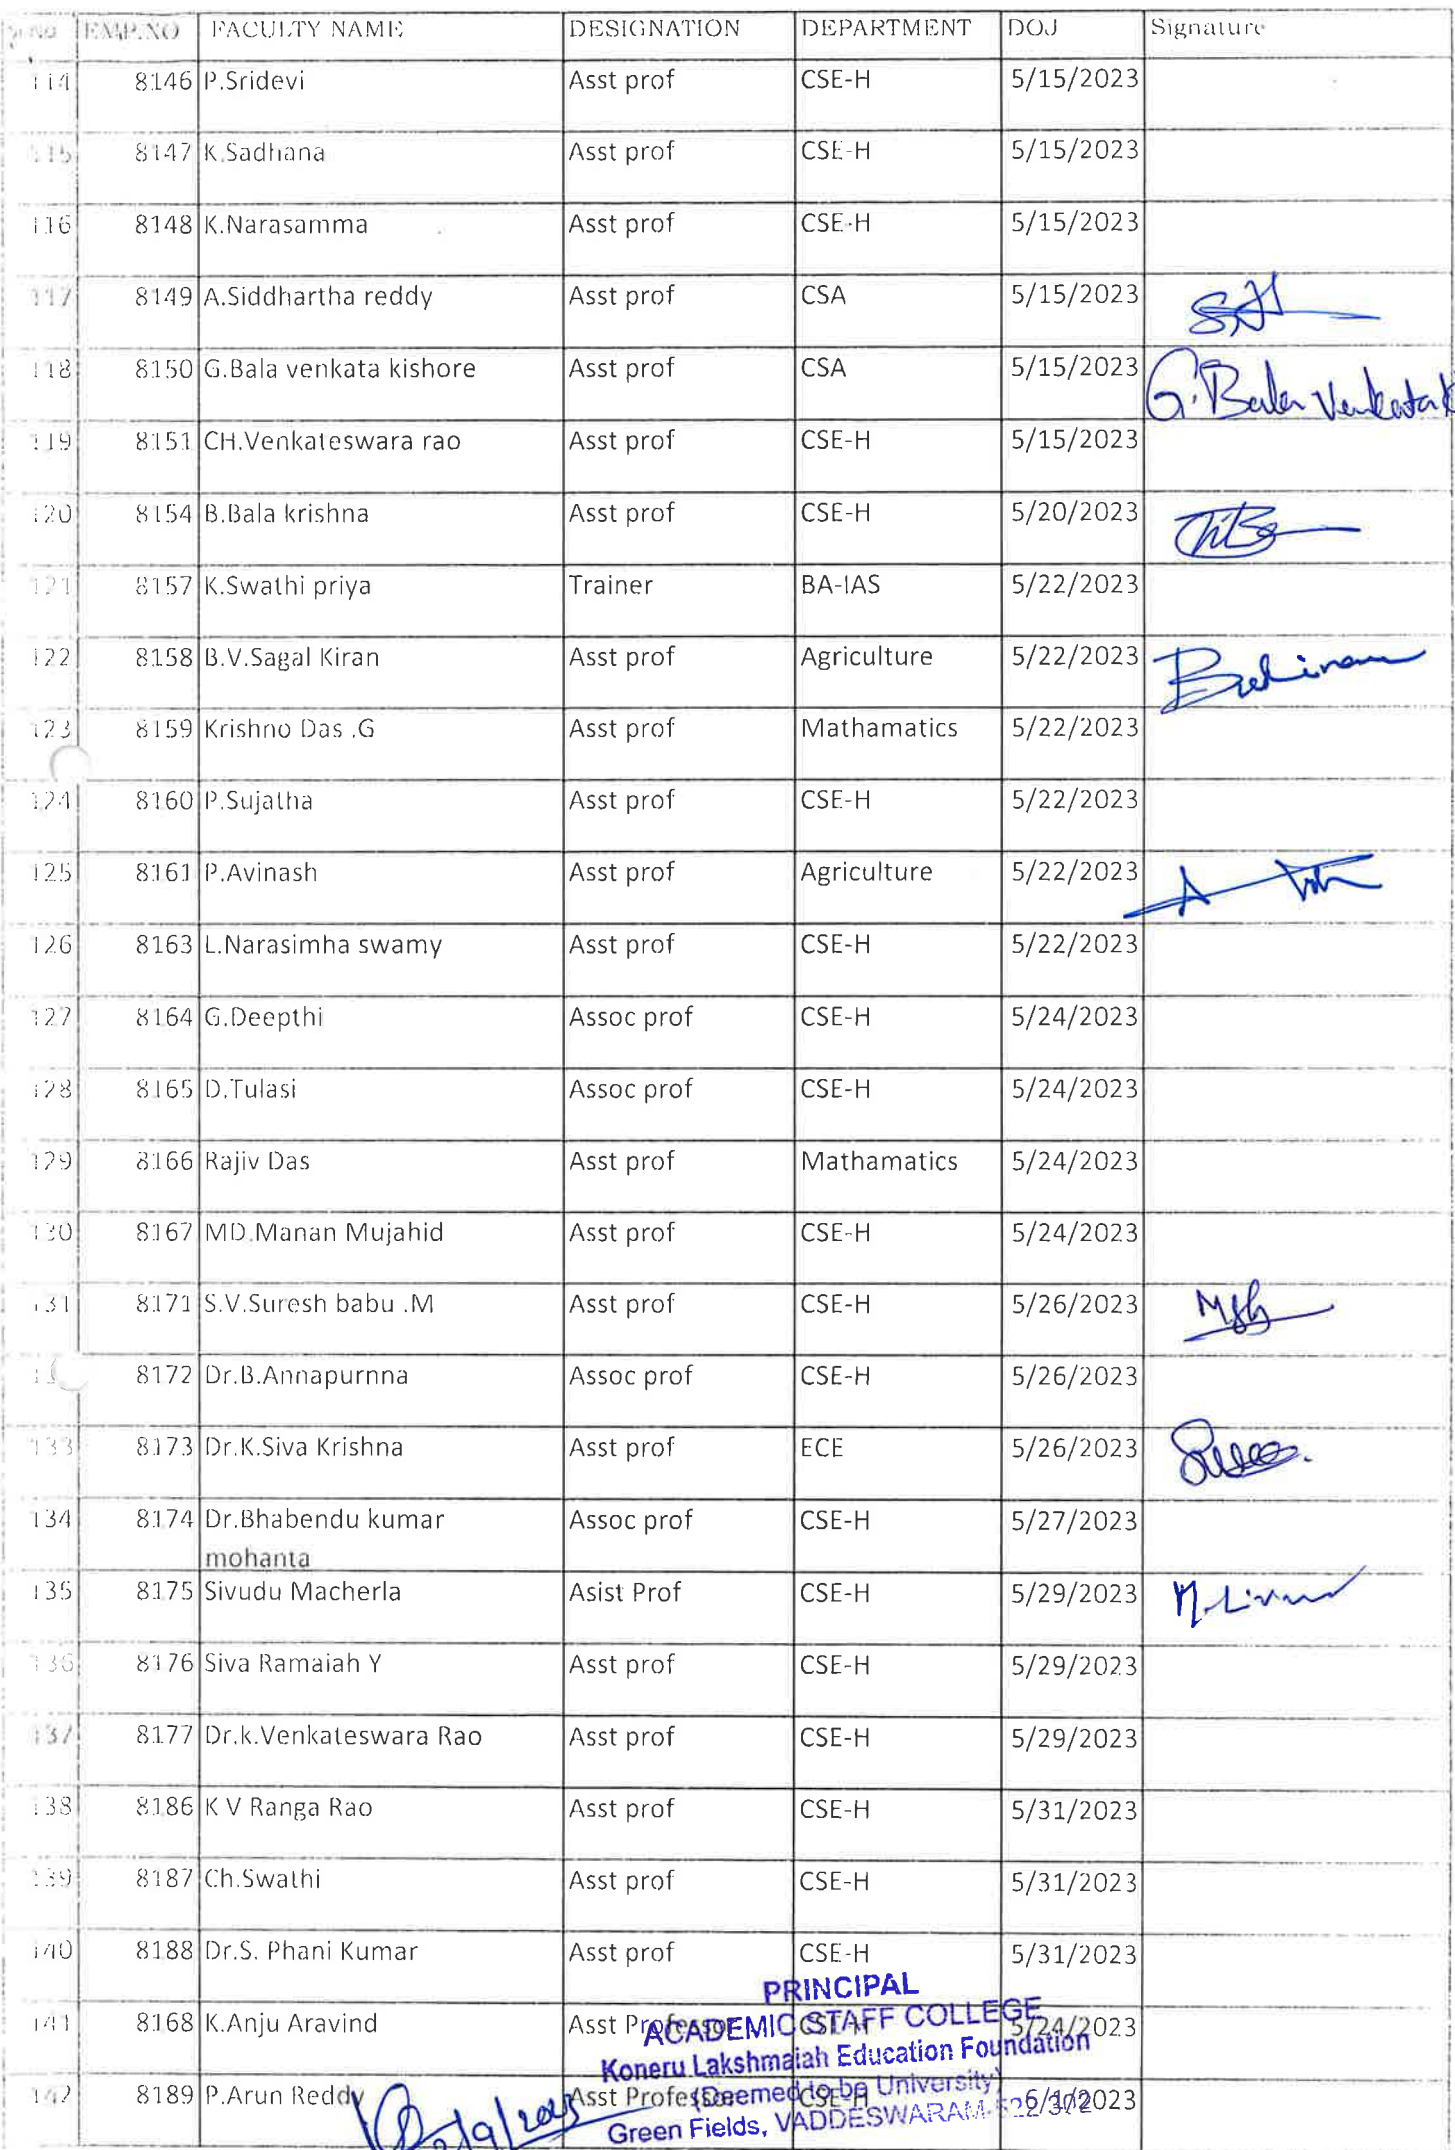 EMP.NO FACULTY NAME DESIGNATION DEPARTMENT DOJ Signature
114 8146 P.Sridevi Asst prof CSE-H 5/15/2023
115 8147 K.Sadhana Asst prof CSE-H 5/15/2023
116 8148 K.Narasamma Asst prof CSE-H 5/15/2023
117 8149 A.Siddhartha reddy Asst prof CSA 5/15/2023
118 8150 G.Bala venkata kishore Asst prof CSA 5/15/2023 G.Bala Venkata k
119 8151 CH.Venkateswara rao Asst prof CSE-H 5/15/2023
120 8154 B.Bala krishna Asst prof CSE-H 5/20/2023
121 8157 K.Swathi priya Trainer BA-IAS 5/22/2023
122 8158 B.V.Sagal Kiran Asst prof Agriculture 5/22/2023
123 8159 Krishno Das .G Asst prof Mathamatics 5/22/2023
124 8160 P.Sujatha Asst prof CSE-H 5/22/2023
125 8161 P.Avinash Asst prof Agriculture 5/22/2023
126 8163 L.Narasimha swamy Asst prof CSE-H 5/22/2023
127 8164 G.Deepthi Assoc prof CSE-H 5/24/2023
128 8165 D.Tulasi Assoc prof CSE-H 5/24/2023
129 8166 Rajiv Das Asst prof Mathamatics 5/24/2023
130 8167 MD.Manan Mujahid Asst prof CSE-H 5/24/2023
131 8171 S.V.Suresh babu .M Asst prof CSE-H 5/26/2023
8172 Dr.B.Annapurnna Assoc prof CSE-H 5/26/2023
133 8173 Dr.K.Siva Krishna Asst prof ECE 5/26/2023
134 8174 Dr.Bhabendu kumar Assoc prof CSE-H 5/27/2023
mohanta
135 8175 Sivudu Macherla Asist Prof CSE-H 5/29/2023
136 8176 Siva Ramaiah Y Asst prof CSE-H 5/29/2023
137 8177 Dr.k.Venkateswara Rao Asst prof CSE-H 5/29/2023
138 8186 K V Ranga Rao Asst prof CSE-H 5/31/2023
139 8187 Ch.Swathi Asst prof CSE-H 5/31/2023
140 8188 Dr.S. Phani Kumar Asst prof CSE-H 5/31/2023
PRINCIPAL
141 8168 K.Anju Aravind Asst Professor CSE-H 5/24/2023
ACADEMIC STAFF COLLEGE
Koneru Lakshmaiah Education Foundation
142 8189 P.Arun Reddy Asst Professor CSE-H 6/1/2023
(Deemed to be University)
Green Fields, VADDESWARAM-522 302